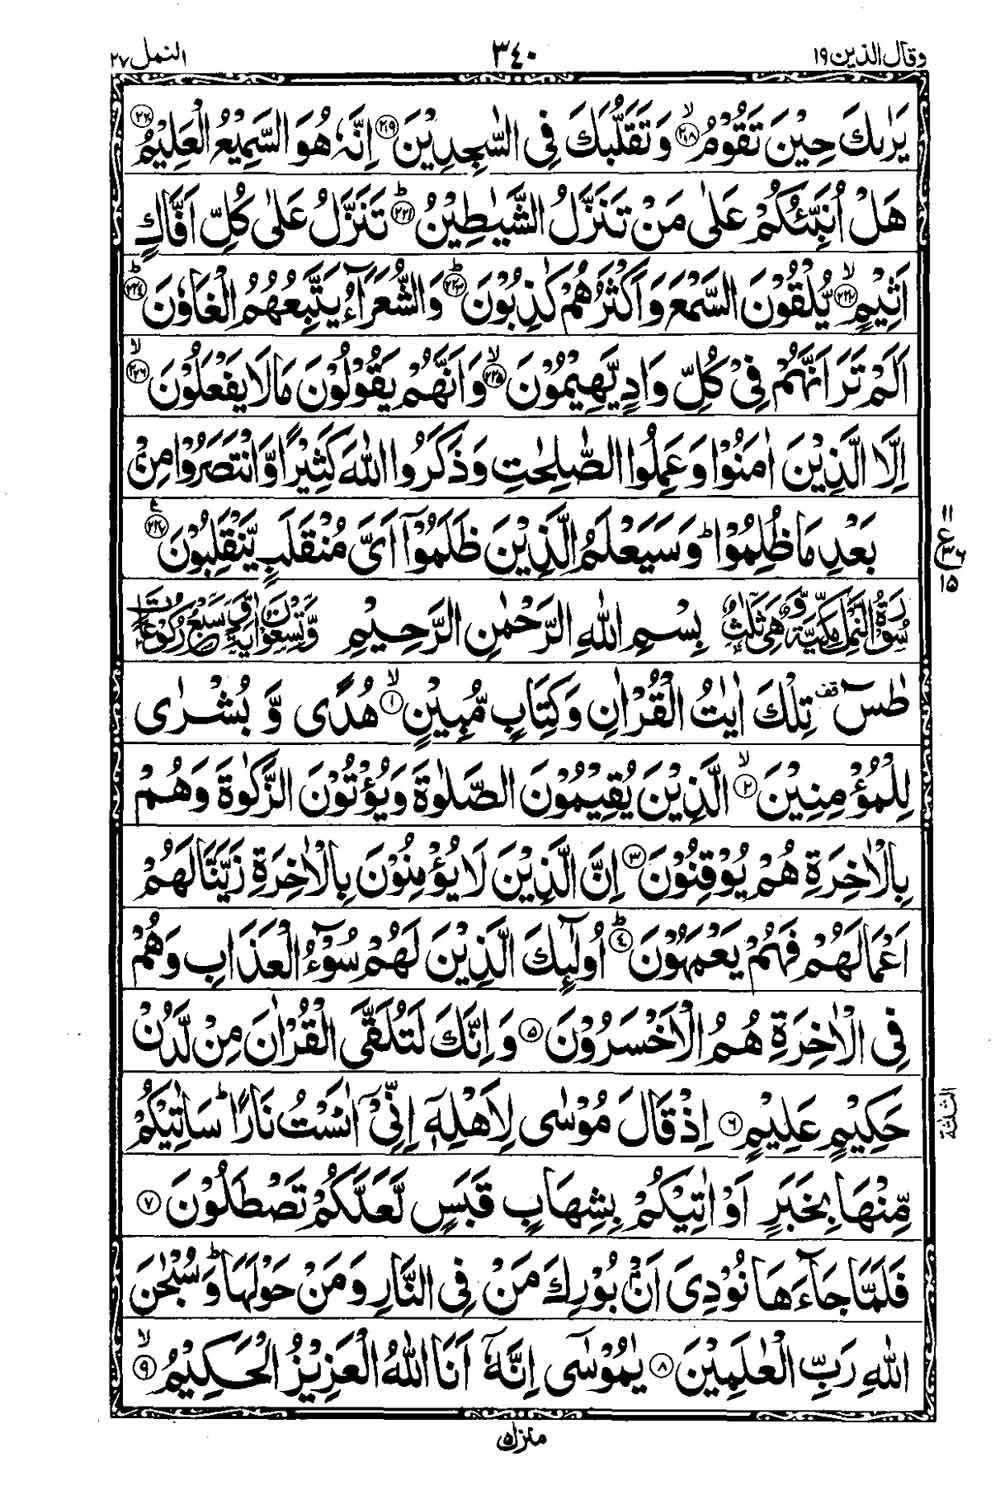 وقال الذين ١٩ ٣٤٠ النمل ٢٧
يَرٰىكَ حِيْنَ تَقُوْمُ ۙ﴿۲۱۸﴾ وَ تَقَلُّبَكَ فِى السّٰجِدِيْنَ ﴿۲۱۹﴾ اِنَّهٗ هُوَ السَّمِيْعُ الْعَلِيْمُ ﴿۲۲۰﴾
هَلْ اُنَبِّئُكُمْ عَلٰى مَنْ تَنَزَّلُ الشَّيٰطِيْنُ ؕ﴿۲۲۱﴾ تَنَزَّلُ عَلٰى كُلِّ اَفَّاكٍ
اَثِيْمٍ ۙ﴿۲۲۲﴾ يُّلْقُوْنَ السَّمْعَ وَ اَكْثَرُهُمْ كٰذِبُوْنَ ؕ﴿۲۲۳﴾ وَ الشُّعَرَآءُ يَتَّبِعُهُمُ الْغَاوٗنَ ؕ﴿۲۲۴﴾
اَلَمْ تَرَ اَنَّهُمْ فِىْ كُلِّ وَادٍ يَّهِيْمُوْنَ ۙ﴿۲۲۵﴾ وَ اَنَّهُمْ يَقُوْلُوْنَ مَا لَا يَفْعَلُوْنَ ۙ﴿۲۲۶﴾
اِلَّا الَّذِيْنَ اٰمَنُوْا وَ عَمِلُوا الصّٰلِحٰتِ وَ ذَكَرُوا اللّٰهَ كَثِيْرًا وَّ انْتَصَرُوْا مِنْۢ
بَعْدِ مَا ظُلِمُوْا ؕ وَ سَيَعْلَمُ الَّذِيْنَ ظَلَمُوْۤا اَىَّ مُنْقَلَبٍ يَّنْقَلِبُوْنَ ﴿۲۲۷﴾ ع
١١
ع ٣٦
١٥
سُوْرَةُ النَّمْلِ مَكِّيَّةٌ وَّ هِىَ ثَلٰثٌ بِسْمِ اللّٰهِ الرَّحْمٰنِ الرَّحِيْمِ وَّ تِسْعُوْنَ اٰيَةً وَّ سَبْعُ رُكُوْعَاتٍ
طٰسٓ قف تِلْكَ اٰيٰتُ الْقُرْاٰنِ وَ كِتَابٍ مُّبِيْنٍ ۙ﴿۱﴾ هُدًى وَّ بُشْرٰى
لِلْمُؤْمِنِيْنَ ۙ﴿۲﴾ الَّذِيْنَ يُقِيْمُوْنَ الصَّلٰوةَ وَ يُؤْتُوْنَ الزَّكٰوةَ وَ هُمْ
بِالْاٰخِرَةِ هُمْ يُوْقِنُوْنَ ﴿۳﴾ اِنَّ الَّذِيْنَ لَا يُؤْمِنُوْنَ بِالْاٰخِرَةِ زَيَّنَّا لَهُمْ
اَعْمَالَهُمْ فَهُمْ يَعْمَهُوْنَ ؕ﴿۴﴾ اُولٰٓئِكَ الَّذِيْنَ لَهُمْ سُوْٓءُ الْعَذَابِ وَ هُمْ
فِى الْاٰخِرَةِ هُمُ الْاَخْسَرُوْنَ ﴿۵﴾ وَ اِنَّكَ لَتُلَقَّى الْقُرْاٰنَ مِنْ لَّدُنْ
حَكِيْمٍ عَلِيْمٍ ﴿۶﴾ اِذْ قَالَ مُوْسٰى لِاَهْلِهٖۤ اِنِّىْۤ اٰنَسْتُ نَارًا ؕ سَاٰتِيْكُمْ
الثلثة
مِّنْهَا بِخَبَرٍ اَوْ اٰتِيْكُمْ بِشِهَابٍ قَبَسٍ لَّعَلَّكُمْ تَصْطَلُوْنَ ﴿۷﴾
فَلَمَّا جَآءَهَا نُوْدِىَ اَنْۢ بُوْرِكَ مَنْ فِى النَّارِ وَ مَنْ حَوْلَهَا ؕ وَ سُبْحٰنَ
اللّٰهِ رَبِّ الْعٰلَمِيْنَ ﴿۸﴾ يٰمُوْسٰۤى اِنَّهٗۤ اَنَا اللّٰهُ الْعَزِيْزُ الْحَكِيْمُ ۙ﴿۹﴾
منزل ۵